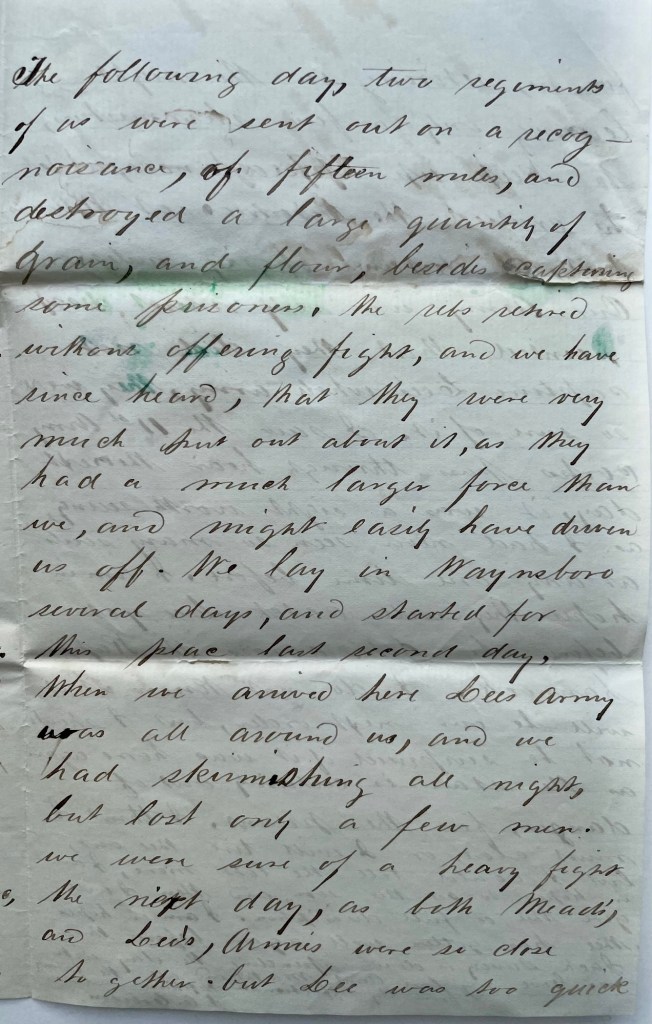 The following day, two regiments
of us were sent out on a recog-
noizance, of fifteen miles, and
destroyed a large quantity of
Grain, and flour, besides capturing
some prisoners. the rebs retired
without offering fight, and we have
since heard, that they were very
much put out about it, as they
had a much larger force than
we, and might easily have driven
us off. We lay in Waynsboro
several days, and started for
this plac last second day,
When we arrived here Lees Army
was all around us, and we
had skirmishing all night,
but lost only a few men.
we were sure of a heavy fight
the next day, as both Mead's,
and Lee's, Armies were so close
to gether. but Lee was too quick